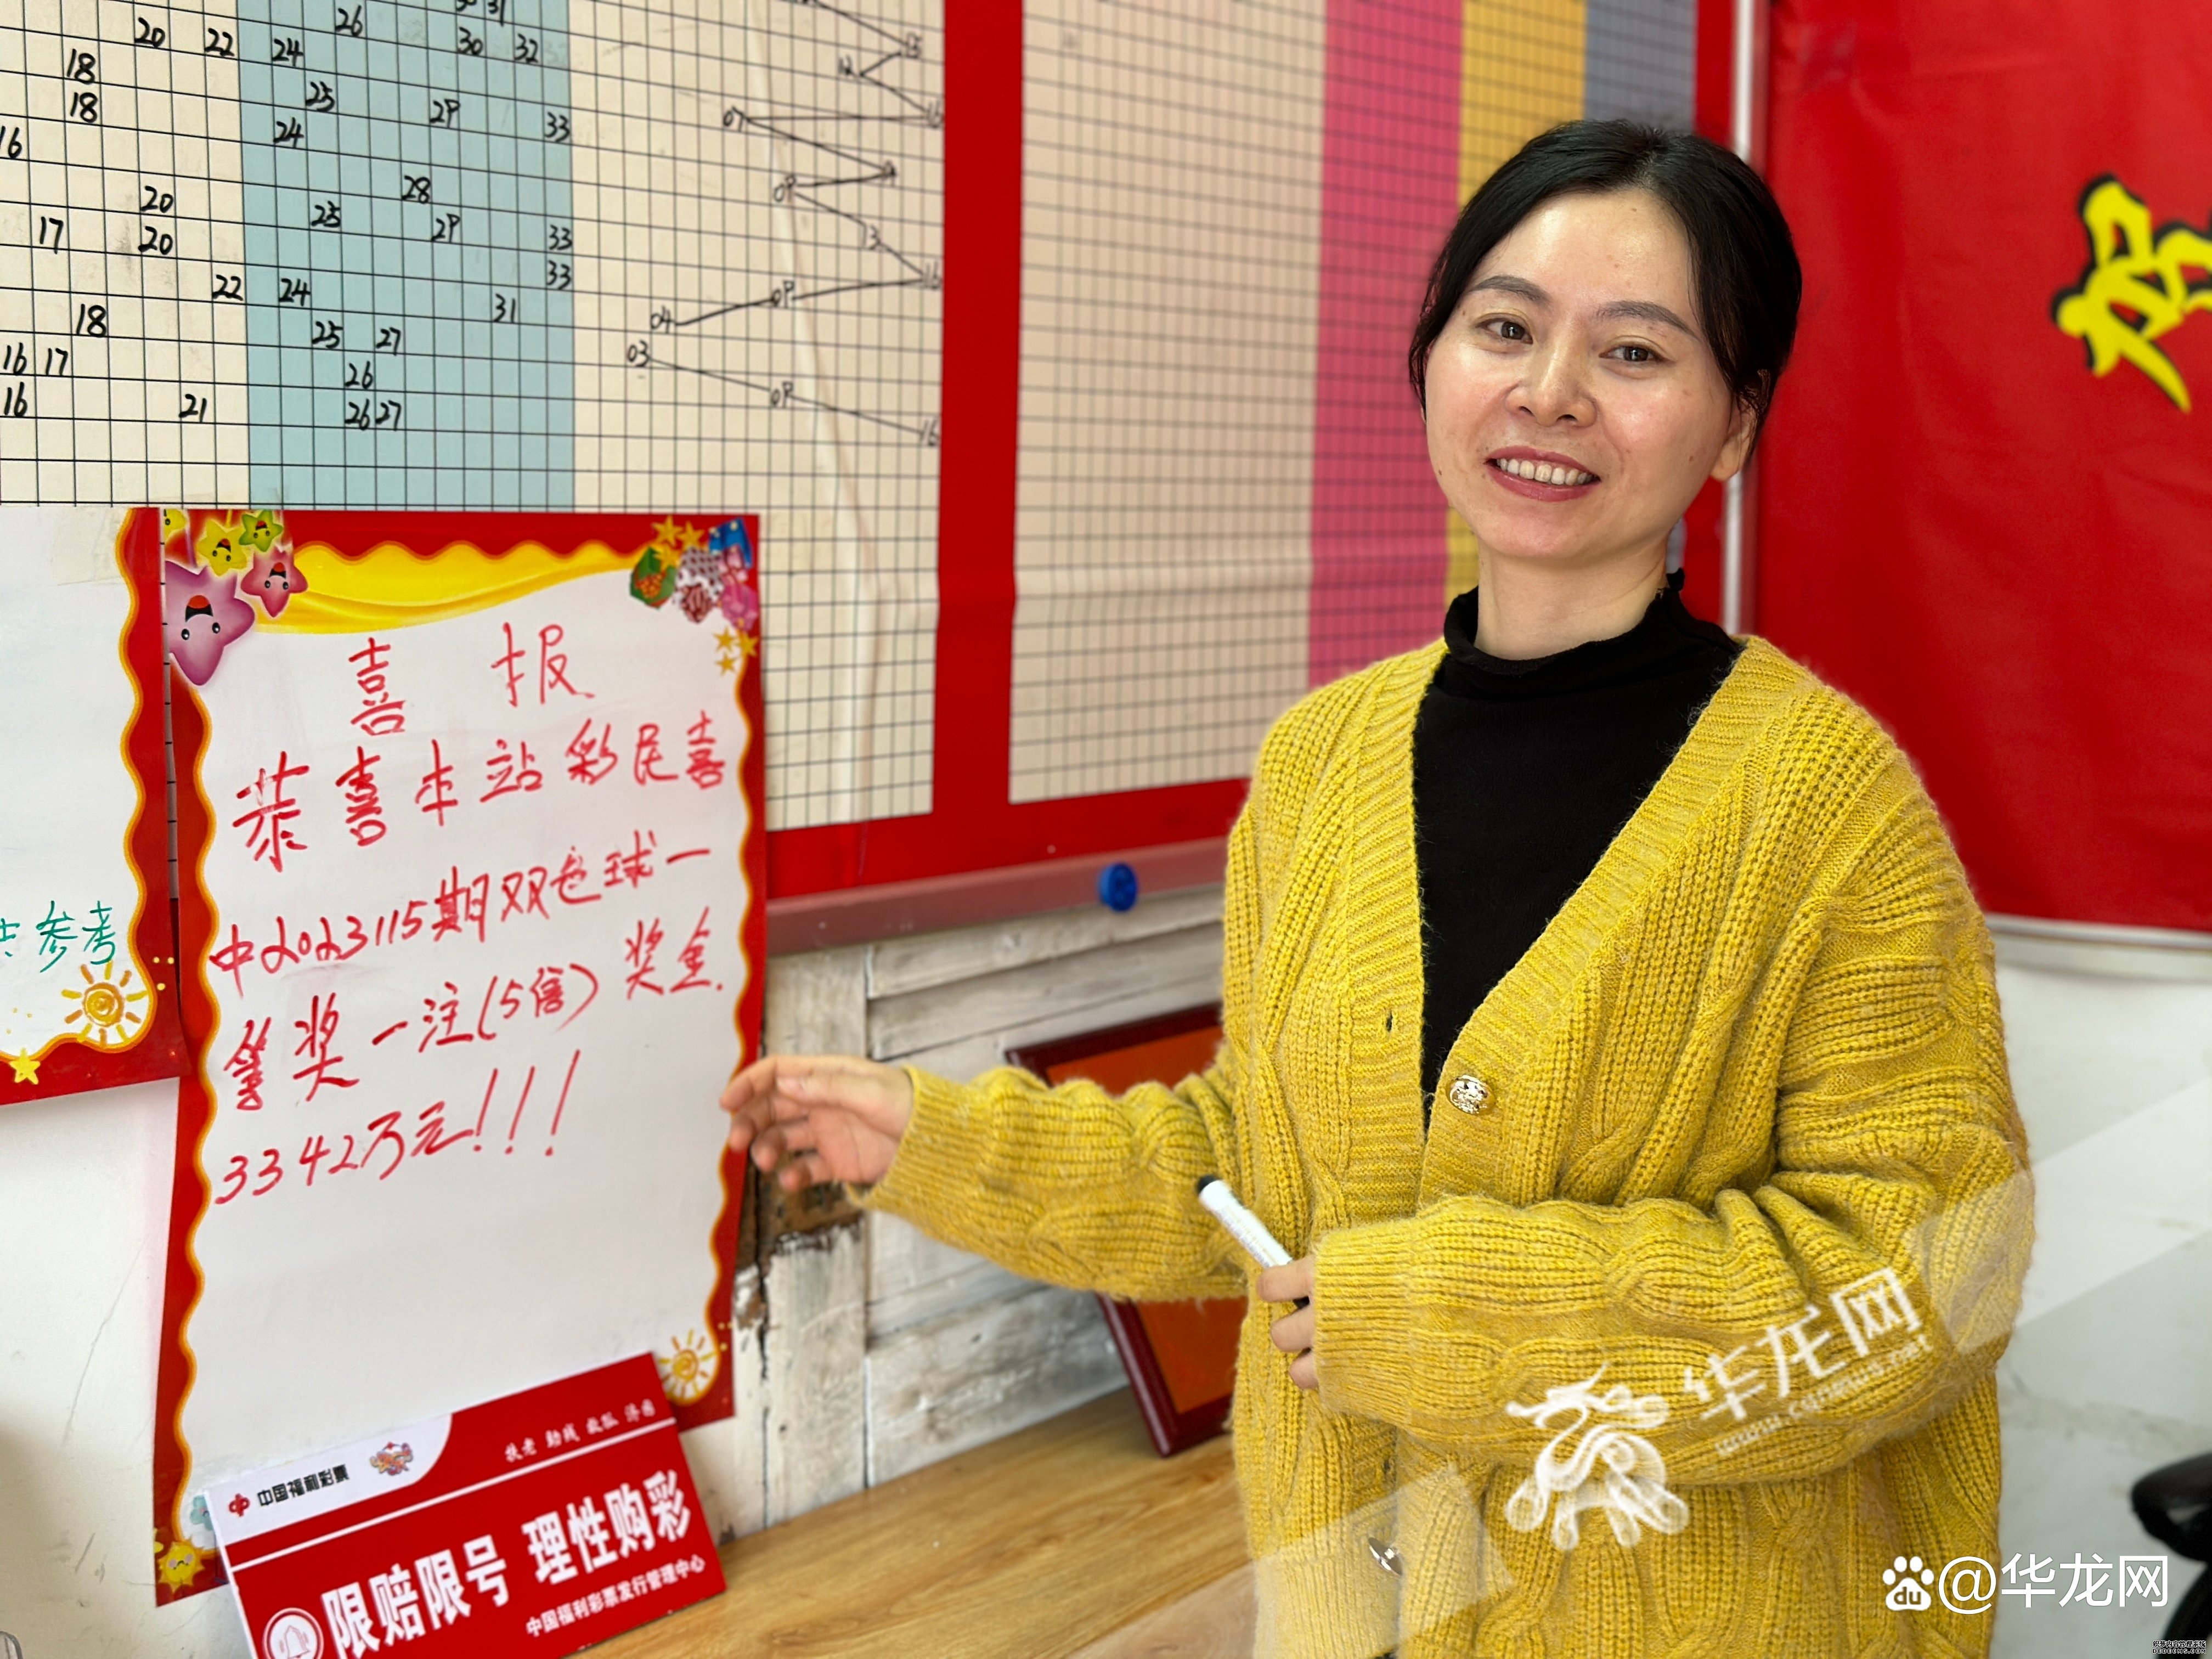 26 30 31
20 22 24 30 32
18 25 29 33
18 24
16
28
20 25 29 33
17 20 33
22 24 31
18 25 27
16 17 26
16 21 26 27
13
12
16
07
09
13
16
09
04
03
09
16
好
参考
喜报
恭喜本站彩民喜
中2023115期双色球一
等奖一注(5倍)奖金
3342万元!!!
中国福利彩票
扶老 助残 救孤 济困
限赔限号 理性购彩
中国福利彩票发行管理中心
华龙网
www.cqnews.net
du @华龙网